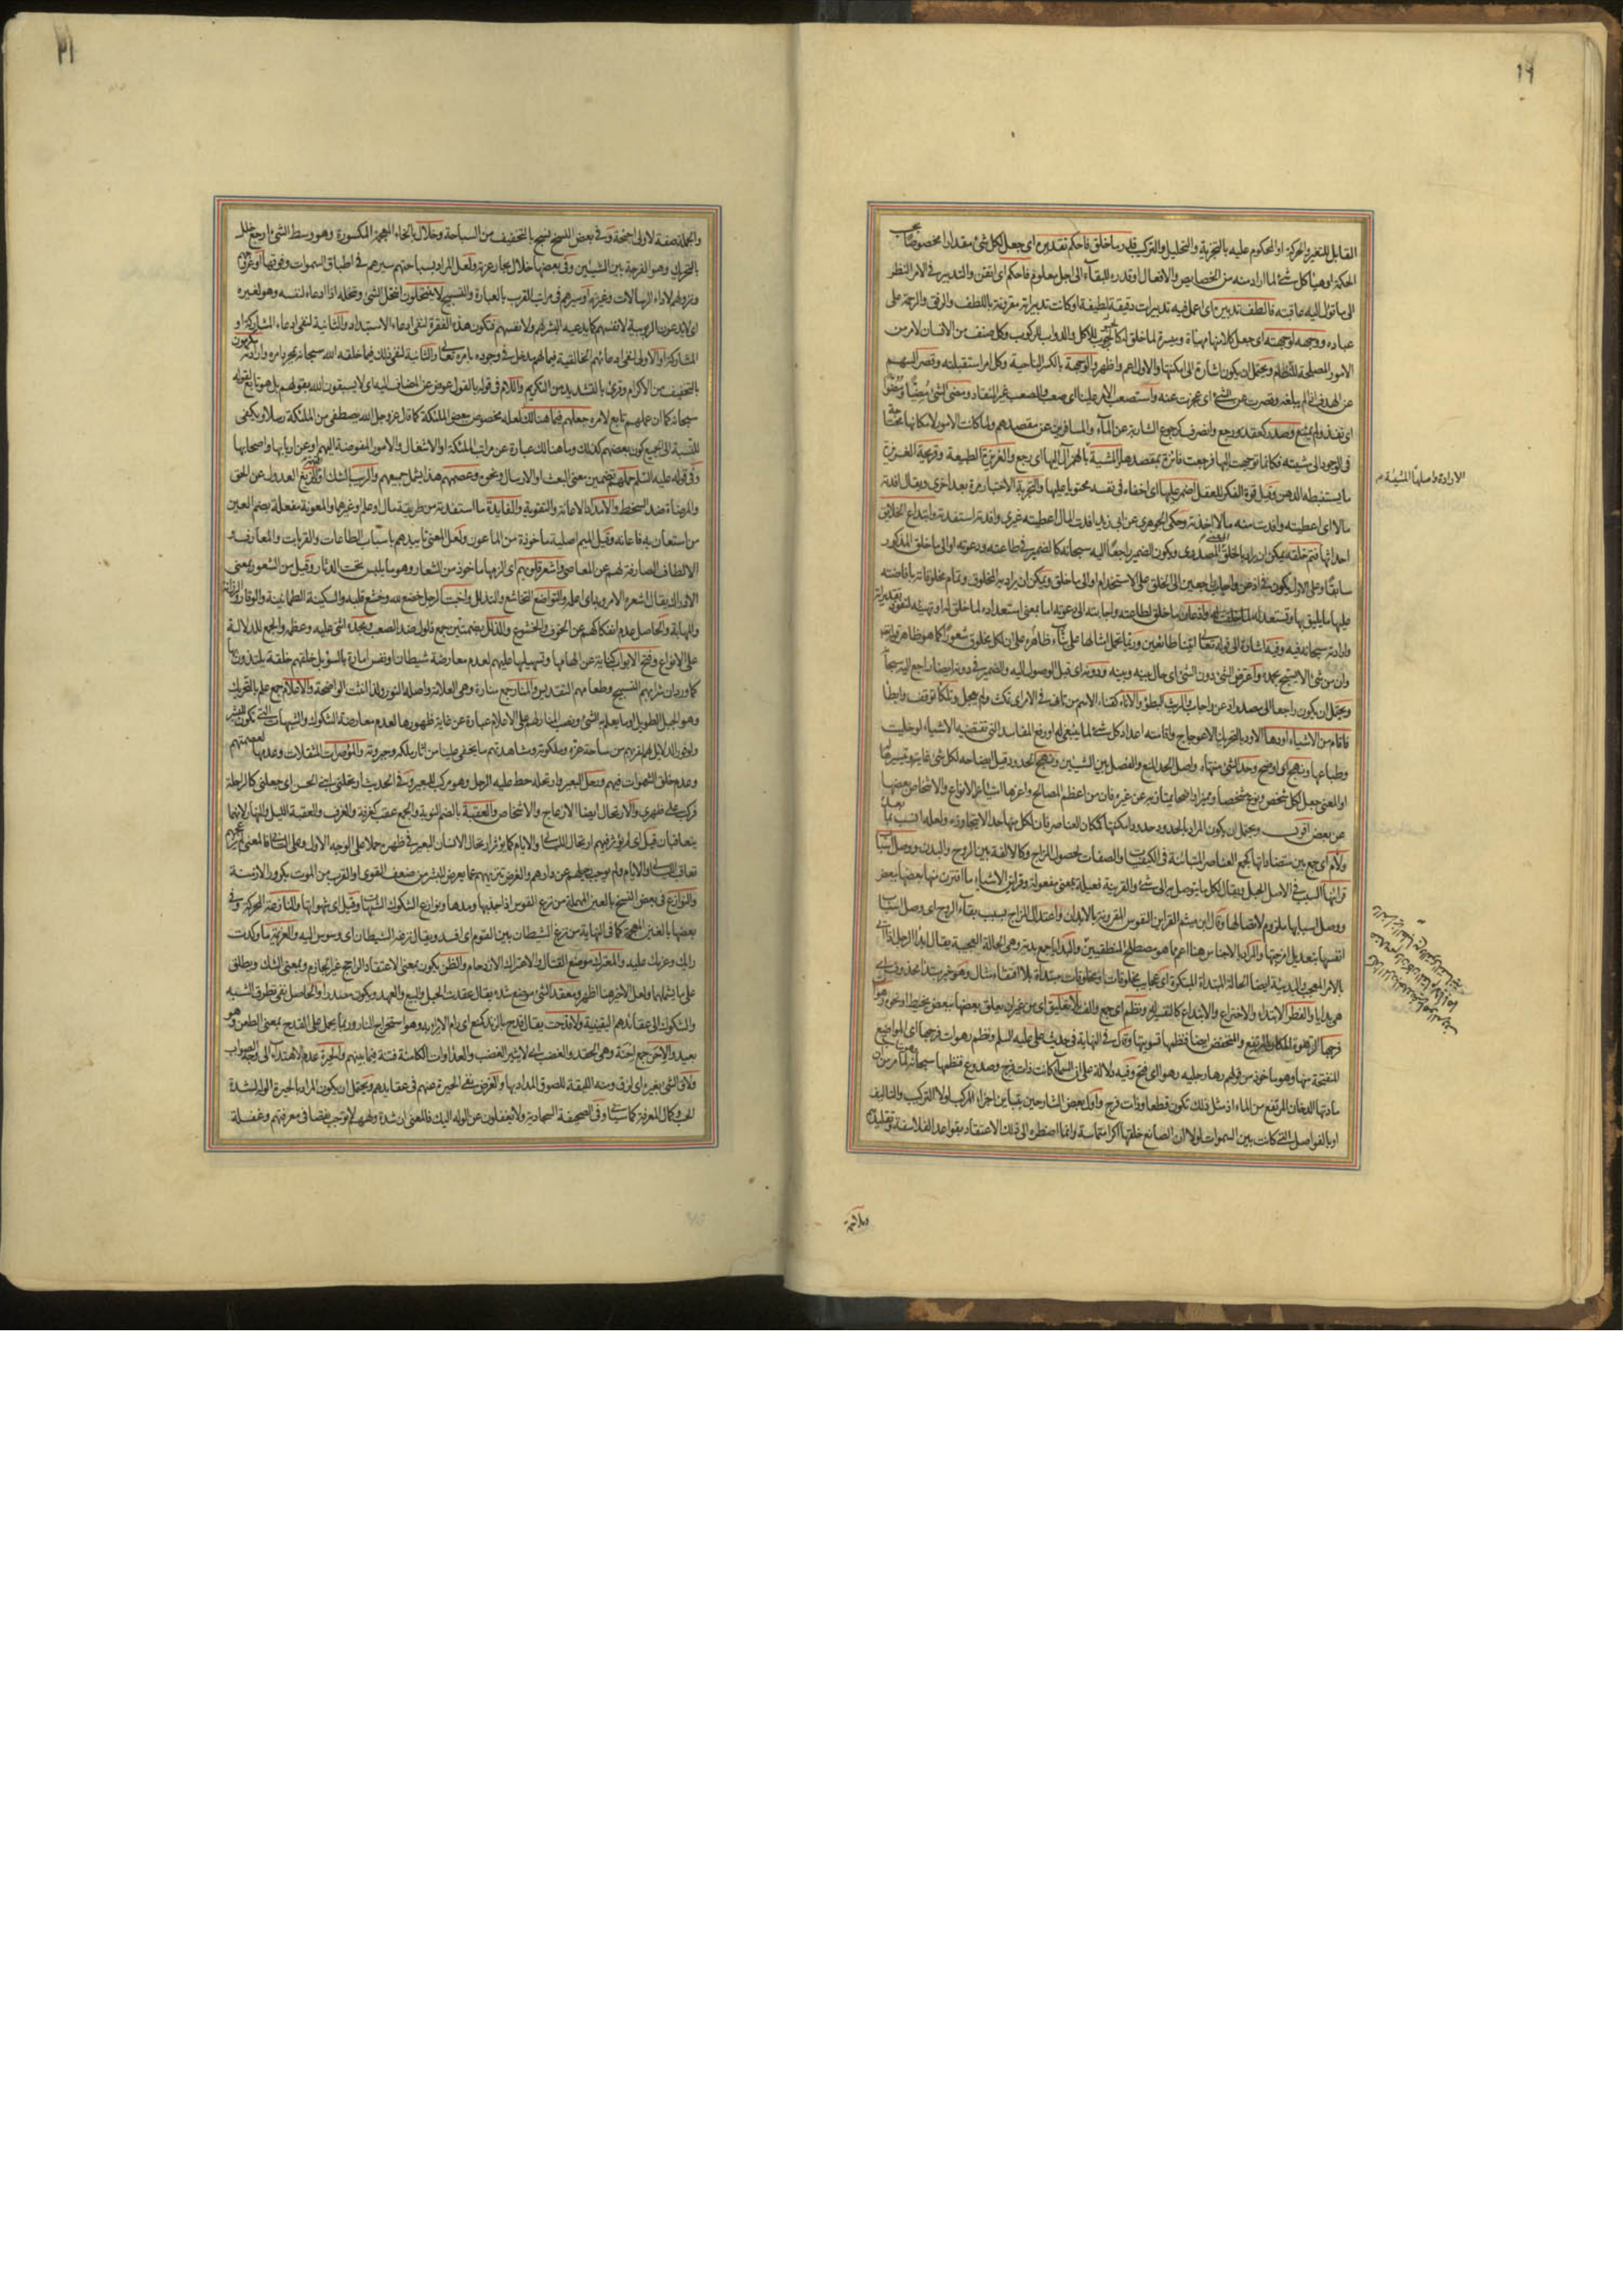 القابل للتغير والحركة او المحكوم عليه بالتجزية والتحليل والتركيب قدر ما خلق فاحكم تقديره اى جعل لكل شئ مقدارا مخصوصا بحسب
الحكمة او هيأ كل شئ لما اراد منه من الخصايص والافعال او قدره للبقاء الى اجل معلوم فاحكم اى اتقن والتدبير فى الامر النظر
الى ما تؤل اليه عاقبته فالطف تدبيره اى اعمل فيه تدبيرات دقيقة لطيفة او كانت تدبيراته مقرونة باللطف والرفق والرحمة على
عباده ووجهه لوجهته اى جعل كلا منها مهيأة وميسرة لما خلق له كالحبوب للاكل والدواب للركوب وكل صنف من الانسان لامر من
الامور المصلحة للنظام ويحتمل ان يكون اشارة الى امكنتها والاول اعم واظهر والوجهة بالكسر الناحية وكل امر استقبلته وقصر السهم
عن الهدف اذا لم يبلغه وقصرت عن الشئ اى عجزت عنه واستصعب الامر علينا اى صعب والمصعب غير المنقاد ومضى الشئ مضيا ومضوا
اى نفذ ولم يمتنع وصدر كقعد ورجع وانصرف كرجوع الشاربة عن الماء والمسافرين عن مقصدهم ولما كانت الامور لامكانها محتاجة
فى الوجود الى مشيته فكانها توجهت اليها فرجعت فائزة بمقصدها والمشية بالهمز آل اليها اى رجع والغريزة الطبيعة وقريحة الغريزة
الارادة واصلها المشيئة م
ما يستنبطه الذهن وقيل قوة الفكر للعقل اضمر عليها اى اخفاه فى نفسه محتويا عليها والتجربة الاختبار مرة بعد اخرى ويقال افدته
مالا اى اعطيته وافدت منه مالا اخذته وحكى الجوهرى عن ابى زيد افدت المال اعطيته غيرى وافدته استفدته وابتداع الخلايق
احداثها فتم خلقه يمكن ان يراد بالخلق المعنى المصدرى ويكون الضمير راجعا اليه سبحانه كالضمير فى طاعته ودعوته او الى ما خلق المذكور
سابقا وعلى الاول
وارادته سبحانه فيه وفيه اشارة الى قوله تعالى اتينا طائعين
وان من شئ الا يسبح بحمده واعترض الشئ دون الشئ اى حال بينه وبينه ودونه اى قبل الوصول اليه والضمير فى دونه ايضا راجع اليه سبحانه
ويحتمل ان يكون راجعا الى مصدر اذعن واجاب والريث البطؤ والاناة كقناة الاسم من تانى فى الامر اى تمكث ولم يعجل وتلكأ توقف وابطأ
فاقام من الاشياء اودها الاود بالتحريك الاعوجاج واقامته اعداد كل شئ لما ينبغى له او رفع المفاسد التى تقتضيه الاشياء لو خليت
وطباعها ونهج اى اوضح وحد الشئ منتهاه واصل الحد المنع والفصل بين الشيئين ونهج الحدود قيل ايضاحه لكل شئ غايته وتيسيره لها
او المعنى جعل لكل شخص ونوع مشخصا ومميزا واضحا يمتاز به عن غيره فان من اعظم المصالح واعزها امتياز الانواع والاشخاص بعضها
عن بعض اقول ويحتمل ان يكون المراد بالحدود حدود امكنتها كمكان العناصر فان لكل منها حدا لا يتجاوزه ولعله انسب بما بعده
ولاءم اى جمع بين متضاداتها كجمع العناصر المتباينة فى الكيفيات والصفات لحصول المزاج وكالالفة بين الروح والبدن ووصل اسباب
قرائنها السبب فى الاصل الحبل ويقال لكل ما يتوصل به الى شئ والقرينة فعيلة بمعنى مفعولة وقرائن الاشياء ما اقترن منها بعضها ببعض
ووصل اسبابها ملزوم لاتصالها وقال ابن ميثم القراين النفوس المقرونة بالابدان واعتدال المزاج بسبب بقاء الروح اى وصل اسباب
انفسها بتعديل امزجتها والمراد بالاجناس هنا اعم مما هو مصطلح المنطقيين والبدايا جمع بدية وهى الحالة العجيبة يقال ابدأ الرجل اذا اتى
بالامر المعجب والبديئة ايضا الحالة المبتداة المبتكرة اى عجايب مخلوقات او مخلوقات مبتداة بلا اقتفاء مثال وهو خبر مبتدا محذوف اى
هى بدايا والفطر الابتداء والاختراع والابتداع كالتفسير له ونظم اى جمع والف بلا تعليق اى من غير ان يعلق بعضها ببعض بخيط او نحوه
فرجها الرهوة المكان المرتفع والمنخفض ايضا فنظمها تسويتها وقال فى النهاية فى حديث على عليه السلم ونظم رهوات فرجها اى المواضع
المنفتحة منها وهو ماخوذ من قولهم رها رجليه رهوا اى فتح وفيه دلالة على ان السماء كانت ذات فرج وصدوع فنظمها سبحانه
مادتها الدخان المرتفع من الماء اذ مثل ذلك تكون قطعا وذات فرج واول بعض الشارحين بتباين اجزاء المركب لولا التركيب والتاليف
او بالفواصل التى كانت بين السموات لولا ان الصانع خلقها اكرا متماسة وانما اضطره الى ذلك الاعتقاد بقواعد الفلاسفة وتقليدهم
والجملة صفة لاولى اجنحة وفى بعض النسخ تسبح بالتخفيف من السباحة وخلال بالخاء المعجمة المكسورة وهو وسط الشئ او جمع خلل
بالتحريك وهو الفرجة بين الشيئين وفى بعضها خلال بحار عزته ولعل المراد بسباحتهم سيرهم فى اطباق السموات وفوقها
ونزولهم لاداء الرسالات وغيرها او سيرهم فى مراتب القرب بالعبادة والتسبيح لا ينتحلون انتحل الشئ وتنحله اذا ادعاه لنفسه وهو لغيره
اى لا يدعون الربوبية لانفسهم كما يدعيه البشر لهم ولانفسهم فتكون هذه الفقرة لنفى ادعاء الاستبداد والثانية لنفى ادعاء المشاركة او
المشاركة والاولى لنفى ادعائهم الخالقية فيما لهم مدخل فى وجوده بامره تعالى والثانية لنفى ذلك فيما خلقه الله سبحانه بمجرد امره وارادته
بالتخفيف من الاكرام وقرئ بالتشديد من التكريم واللام فى قوله بالقول عوض عن المضاف اليه اى لا يسبقون الله بقولهم بل هو تابع لقوله
سبحانه كما ان عملهم تابع لامره جعلهم فيما هنالك لعله مخصوص ببعض الملئكة كما قال عز وجل الله يصطفى من الملئكة رسلا
للنسبة الى الجميع كون بعضهم كذلك وما هنالك عبارة عن مراتب الملئكة او الاشغال والامور المفوضة اليهم او عن اربابها واصحابها
وفى قوله عليه السلم حملهم تضمين معنى البعث او الارسال ونحوه وعصمهم هذا يشمل جميعهم والريب الشك والزيغ العدول عن الحق
والمرضاة ضد السخط والامداد الاعانة والتقوية والفايدة ما استفدته من طريفة مال او علم او غيرهما والمعونة مفعلة بضم العين
من استعان به فاعانه وقيل الميم اصلية ماخوذة من الماعون ولعل المعنى تاييدهم باسباب الطاعات والقربات والمعارف
الالطاف الصارفة لهم عن المعاصى واشعر قلوبهم اى الزمها ماخوذ من الشعار وهو ما يلبس تحت الدثار وقيل من الشعور بمعنى
الادراك يقال اشعره الامر وبه اى اعلمه والتواضع التخاشع والتذلل واخبت الرجل خضع لله وخشع قلبه والسكينة الطمانينة والوقار
والمهابة والحاصل عدم انفكاكهم عن الخوف والخشوع والذلل بضمتين جمع ذلول ضد الصعب ومجده اثنى عليه وعظمه والجمع للدلالة
على الانواع وفتح الابواب كناية عن الهامها وتسهيلها عليهم لعدم معارضة شيطان او نفس امارة بالسوء بل خلقهم خلقة يلتذون بها
كما ورد ان شرابهم التسبيح وطعامهم التقديس والمنار جمع منارة وهى العلامة واصله النور ولذا انثت الواضحة والاعلام جمع علم بالتحريك
وهو الجبل الطويل او ما يعلم به الشئ ونصب المنار لهم على الاعلام عبارة عن غاية ظهورها لعدم معارضة الشكوك والشبهات التى تكون للبشر
ولوفور الدلايل لهم لقربهم من ساحة عزه وملكوته ومشاهدتهم ما يخفى علينا من اثار ملكه وجبروته والموصرات المثقلات وعدمها لعصمتهم
وعدم خلق الشهوات فيهم ورحل البعير وارتحله حط عليه الرحل وهو مركب للبعير وفى الحديث ارتحلنى ابنى الحسن اى جعلنى كالراحلة
فركب على ظهرى والارتحال ايضا الازعاج والاشخاص والعقبة بالضم النوبة والجمع عقب كغرفة والغرف والعقبة الليل والنهار لانهما
يتعاقبان قيل اى لم يؤثر فيهم ارتحال الليالى والايام كما يؤثر ارتحال الانسان البعير فى ظهره حملا على الوجه الاول وعلى الثانى فالمعنى لم يزعجهم
تعاقب الليالى والايام ولم يوجب رحيلهم عن دارهم والغرض تنزيههم عما يعرض للبشر من ضعف القوى او القرب من الموت بكرور الازمنة
والنوازع فى بعض النسخ بالعين المهملة من نزع القوس اذا جذبها ومدها ونوازع الشكوك الشبهات وقيل اى شهواتها والنازعة المحركة وفى
بعضها بالغين المعجمة كما فى النهاية من نزغ الشيطان بين القوم اى افسد ويقال نزغه الشيطان اى وسوس اليه والعزيمة ما وكدت
رايك وعزمك عليه والمعترك موضع القتال والاعتراك الازدحام والظن يكون بمعنى الاعتقاد الراجح غير الجازم وبمعنى الشك ويطلق
على ما يشملهما ولعل الاخير هنا اظهر ومعقد الشئ موضع شده يقال عقدت الحبل والبيع والعهد ويكون مصدرا والحاصل نفى تطرق الشبه
والشكوك الى عقائدهم اليقينية ولا قدحت يقال قدح بالزند كمنع اى رام الايراء به وهو استخراج النار وربما يحمل على القدح بمعنى الطعن وهو
بعيد والاحن جمع احنة وهى الحقد والغضب اى لا يثير الغضب والعداوات الكامنة فتنة فيما بينهم والحيرة عدم الاهتداء الى وجه الصواب
ولاق الشئ بغيره اى لزق ومنه الليقة للصوق المداد بها والغرض نفى الحيرة عنهم فى عقايدهم ويحتمل ان يكون المراد بالحيرة الوله لشدة
الحب وكمال المعرفة كما سياتى وفى الصحيفة السجادية ولا يغفلون عن الوله اليك فالمعنى ان شدة ولههم لا توجب نقصا فى معرفتهم وغفلة